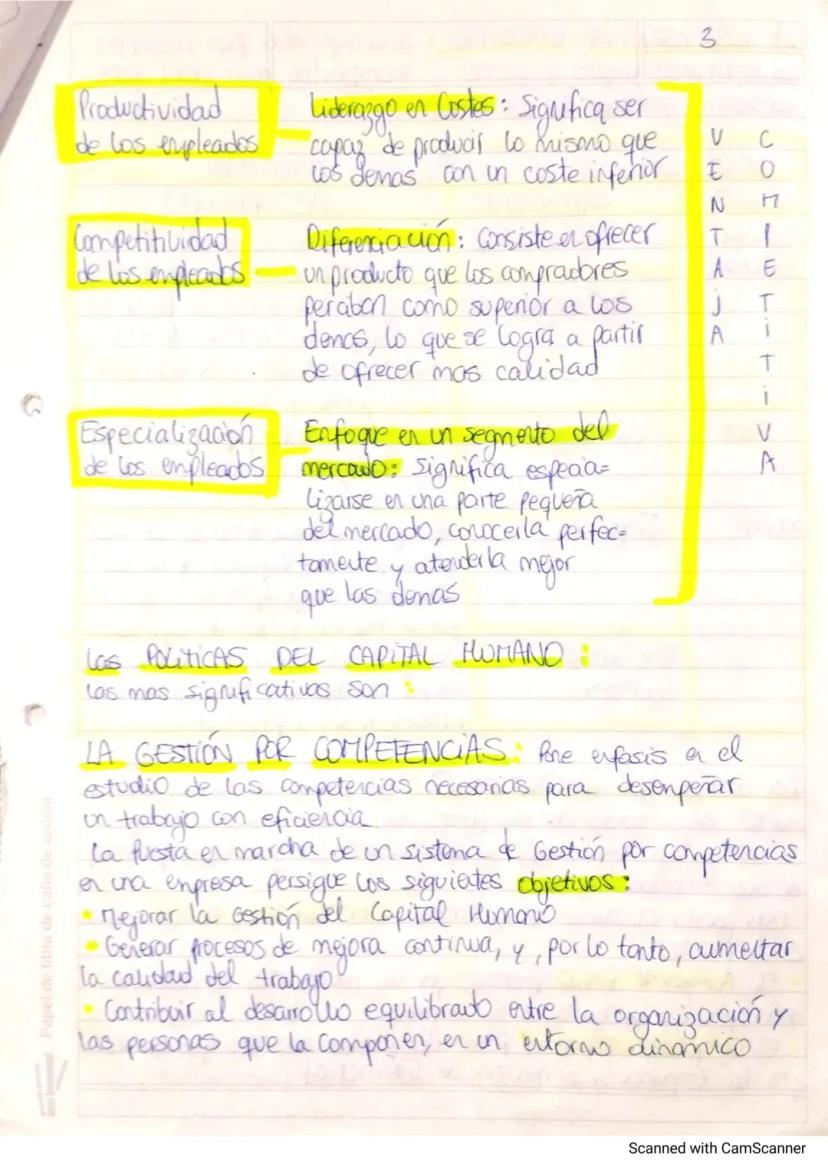 3
Productividad
de los empleados
Liderazgo en Costes: Significa ser
capaz de producir lo mismo que
los demas con un coste inferior
Competitividad
de los empleados
Diferenciación: Consiste en ofrecer
un producto que los compradores
perciban como superior a los
demas, lo que se logra a partir
de ofrecer mas calidad
Especialización
de los empleados
Enfoque en un segmento del
mercado: Significa especia=
lizarse en una parte pequeña
del mercado, conocerla perfec=
tamente y atenderla mejor
que las demas
VENTAJA
COMPETITIVA
Las POLÍTICAS DEL CAPITAL HUMANO:
las mas significativas son:
LA GESTIÓN POR COMPETENCIAS: Pone enfasis en el
estudio de las competencias necesarias para desempeñar
un trabajo con eficiencia
La puesta en marcha de un sistema de Gestión por competencias
en una empresa persigue los siguientes objetivos:
• Mejorar la Gestión del Capital Humano
• Generar procesos de mejora continua, y, por lo tanto, aumentar
la calidad del trabajo
• Contribuir al desarrollo equilibrado entre la organización y
las personas que la componen, en un entorno dinámico
Papel de fibra de caña de azúcar
Scanned with CamScanner